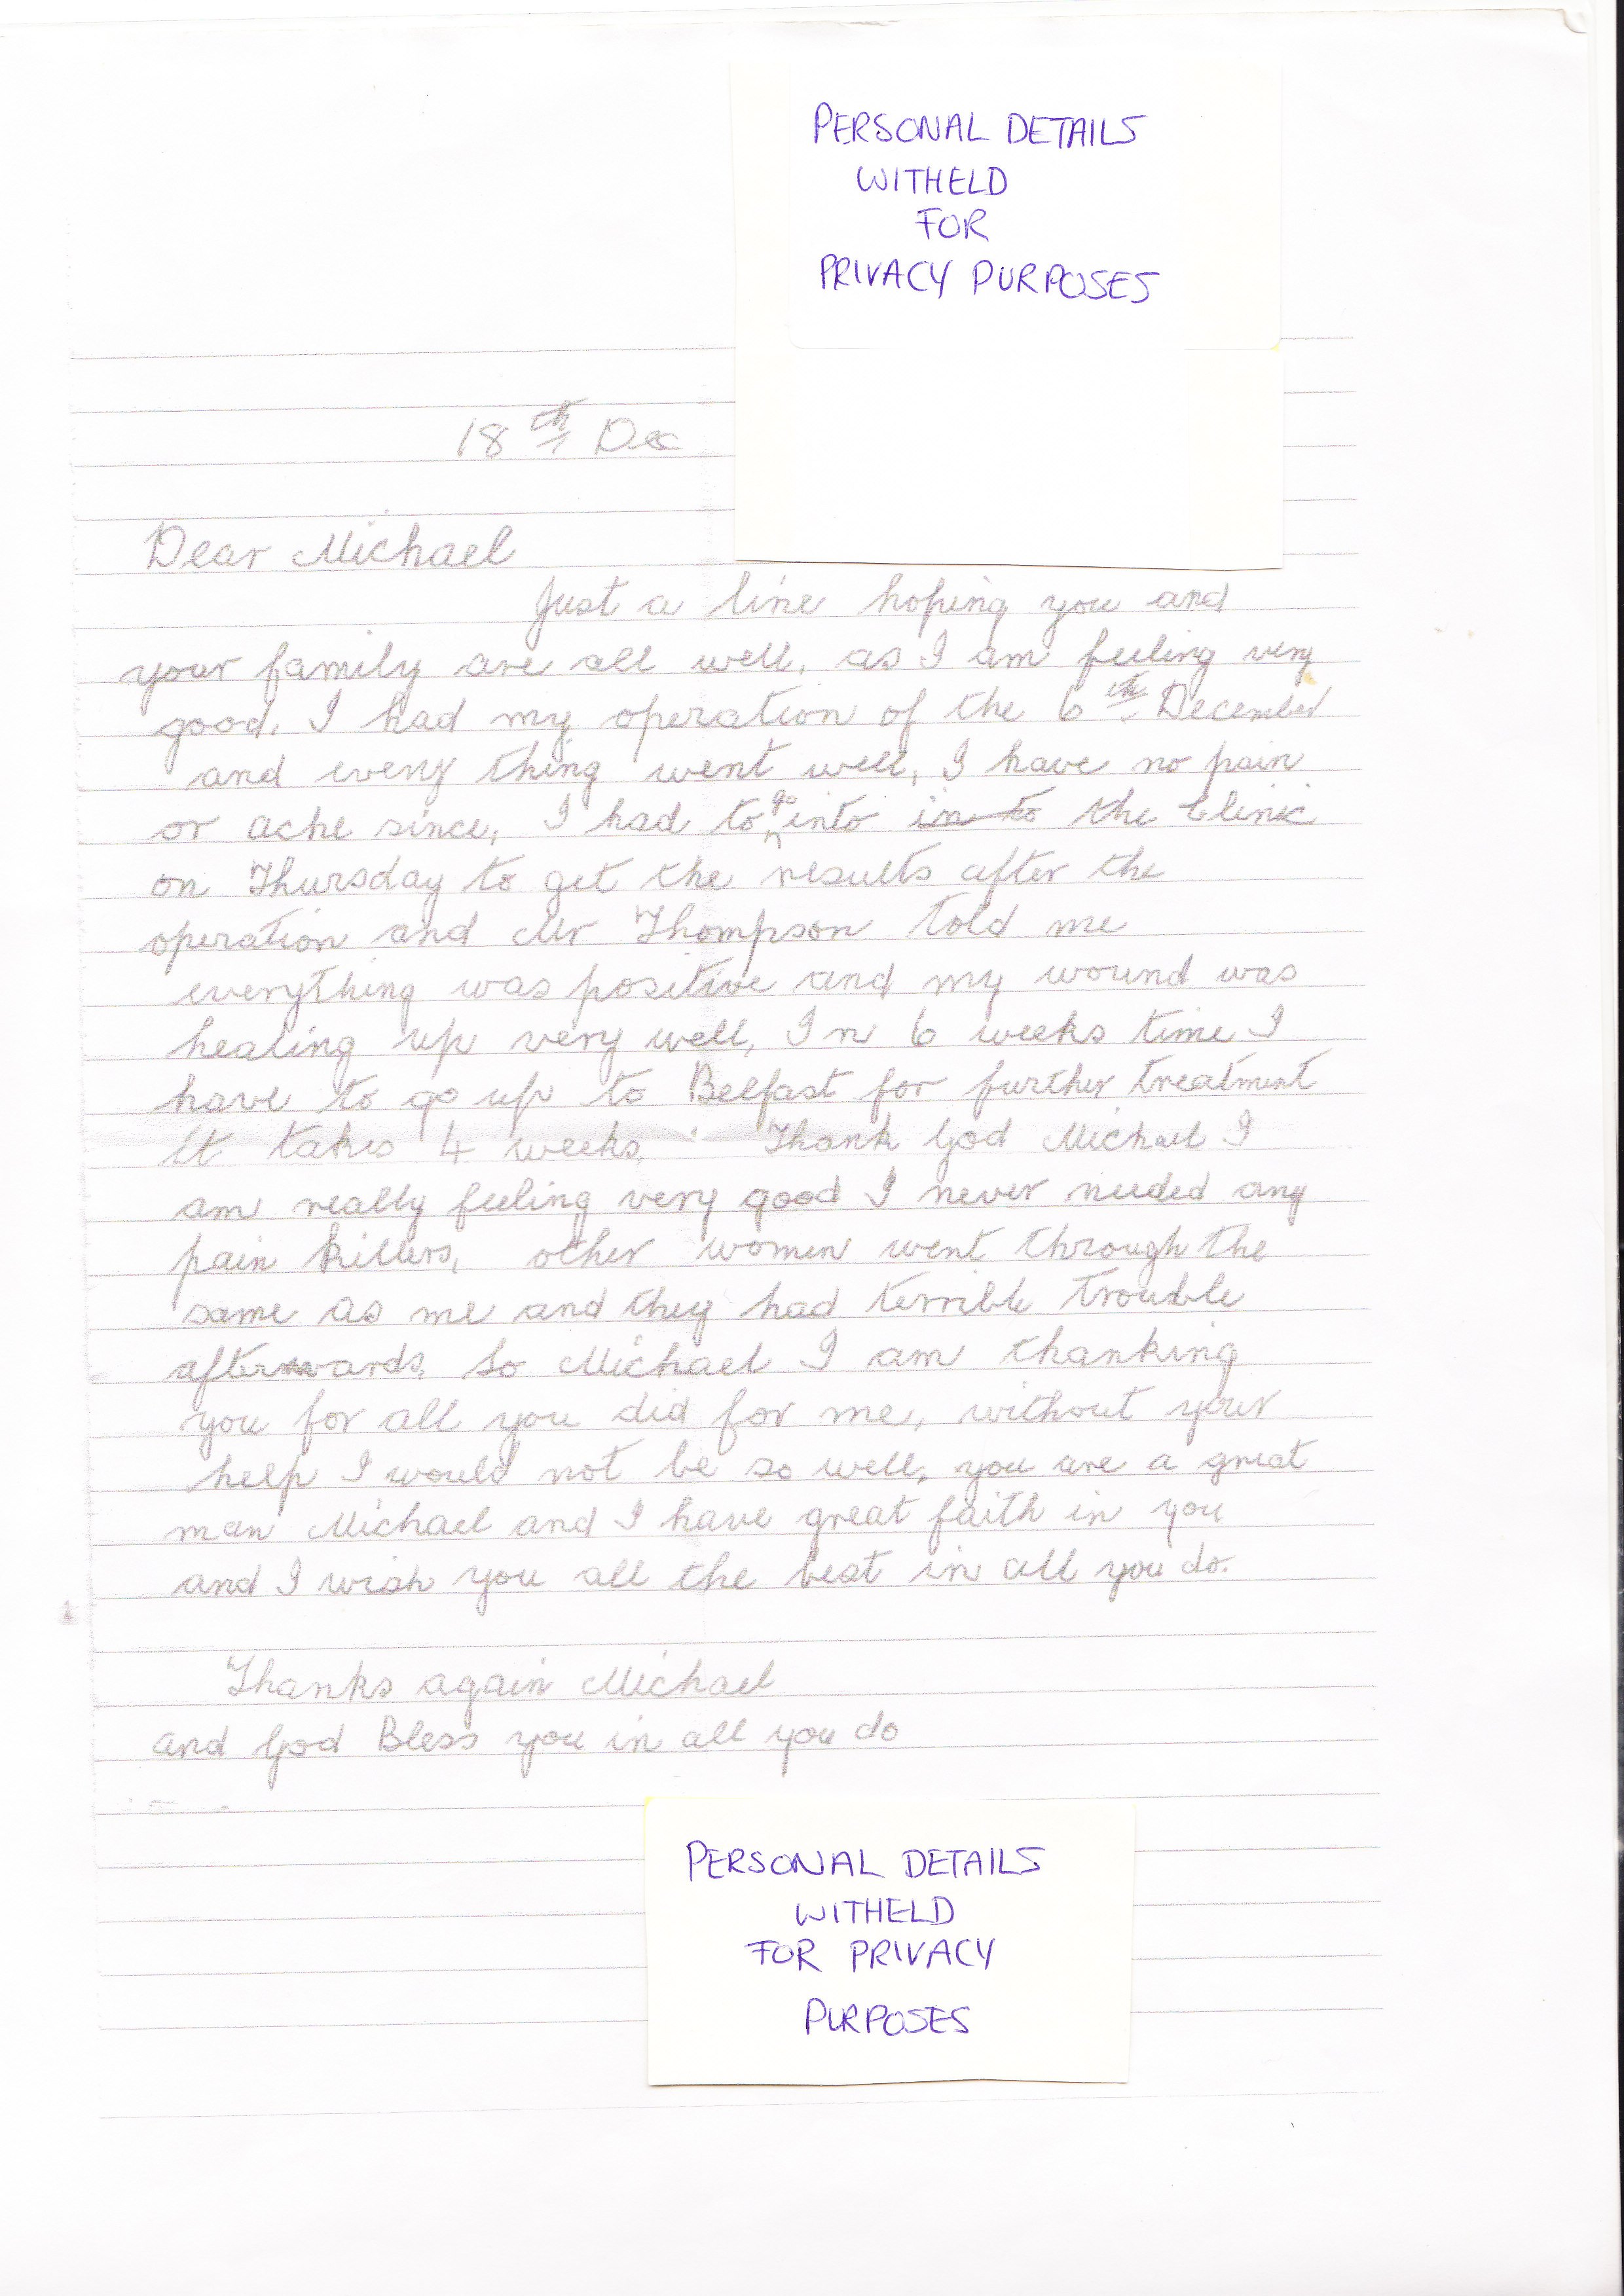 PERSONAL DETAILS
WITHELD
FOR
PRIVACY PURPOSES
18th Dec
Dear Michael
Just a line hoping you and
your family are all well, as I am feeling very
good, I had my operation of the 6th December
and every thing went well, I have no pain
or ache since, I had to go into in to the Clinic
on Thursday to get the results after the
operation and Mr Thompson told me
everything was positive and my wound was
healing up very well, In 6 weeks time I
have to go up to Belfast for further treatment
it takes 4 weeks. Thank God Michael I
am really feeling very good I never needed any
pain killers, other women went through the
same as me and they had terrible trouble
afterwards, So Michael I am thanking
you for all you did for me, without your
help I would not be so well, you are a great
man Michael and I have great faith in you
and I wish you all the best in all you do.
Thanks again Michael
and God Bless you in all you do
PERSONAL DETAILS
WITHELD
FOR PRIVACY
PURPOSES